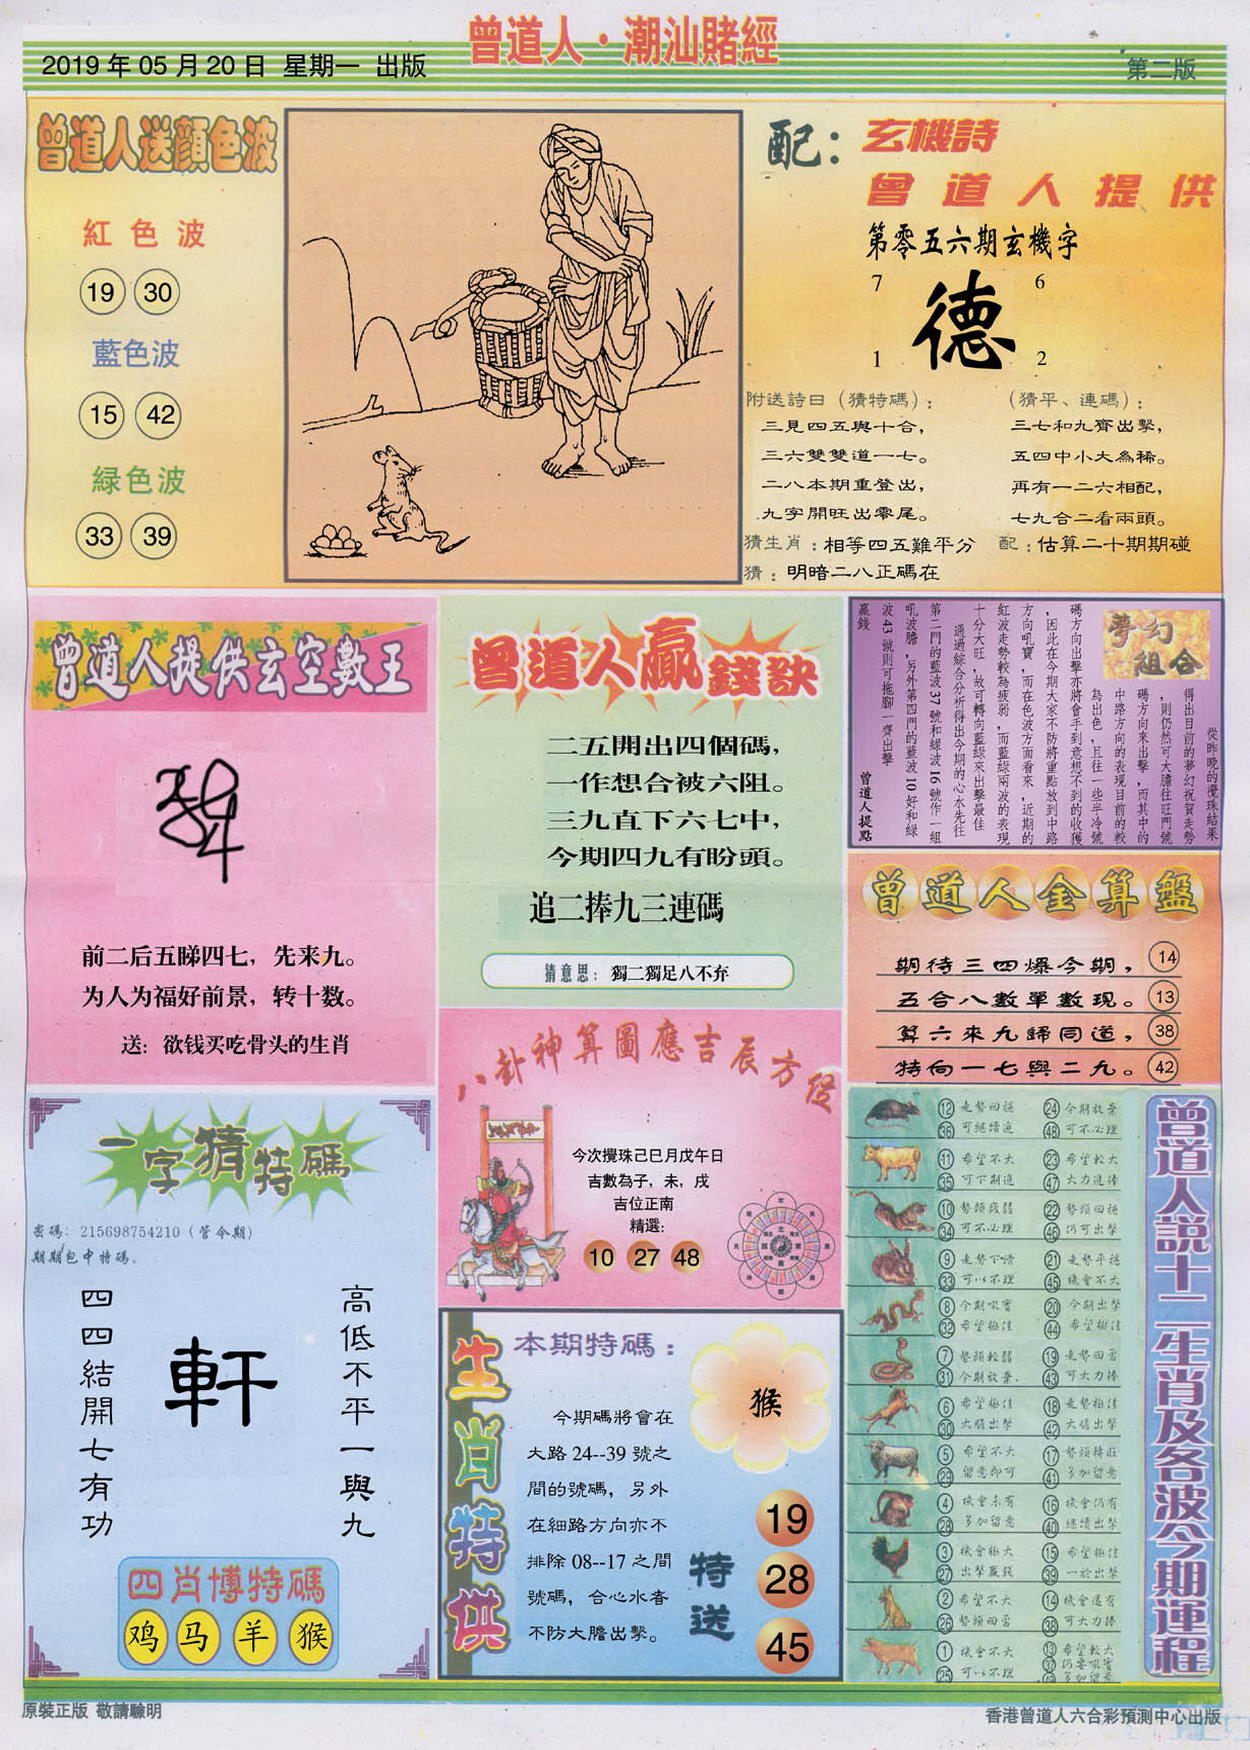 曾道人·潮汕賭經
2019年05月20日 星期一 出版
第二版
曾道人送顏色波
紅色波
19 30
藍色波
15 42
緑色波
33 39
配：玄機詩
曾道人提供
第零五六期玄機字
7 6
德
1 2
附送詩曰（猜特碼）：
三見四五與十合，
三六雙雙道一七。
二八本期重登出，
九字開旺出零尾。
（猜平、連碼）：
三七和九齊出擊，
五四中小大為稀。
再有一二六相配，
七九合二看兩頭。
猜生肖：相等四五難平分
配：估算二十期期碰
猜：明暗二八正碼在
曾道人提供玄空數王
前二后五睇四七，先来九。
为人为福好前景，转十数。
送：欲钱买吃骨头的生肖
曾道人贏錢訣
二五開出四個碼，
一作想合被六阻。
三九直下六七中，
今期四九有盼頭。
追二捧九三連碼
猜意思：獨二獨足八不弃
夢幻
組合
從昨晚的攪珠結果
得出目前的夢幻祝賀走勢
，則仍然可大膽往旺門號
碼方向來出擊，而其中的
中路方向的表現目前的較
為出色，且往一些半冷號
碼方向出擊亦將會手到意想不到的收獲
，因此在今期大家不防將重點放到中路
方向吼寶，而在色波方面看來，近期的
紅波走勢較為疲弱，而藍綠兩波的表現
十分大旺，故可轉向藍綠來出擊最佳
通過綜合分析得出今期的心水先往
第二門的藍波37號和綠波16號作一組
吼波膽，另外第四門的藍波10好和綠
波43號則可拖腳一齊出擊
贏錢
曾道人提點
曾道人金算盤
期待三四爆今期，14
五合八數單數現。13
算六來九歸同道，38
特向一七與二九。42
八卦神算圖應吉辰方位
今次攪珠己巳月戊午日
吉數為子，未，戌
吉位正南
精選：
10 27 48
一字猜特碼
密碼：215698754210（管今期）
期期包中特碼。
高低不平一與九
軒
四四結開七有功
四肖博特碼
鸡 马 羊 猴
生肖特供
本期特碼：
猴
今期碼將會在
大路24--39號之
間的號碼，另外
在細路方向亦不
排除08--17之間
號碼，合心水者
不防大膽出擊。
特送
19
28
45
曾道人説十二生肖及各波今期運程
12 走勢回穩 24 今期放棄
36 可繼續追 48 可不必理
11 希望不大 23 希望較大
35 可下期追 47 大力追捧
10 勢頭疲弱 22 勢頭回穩
34 可不必理 46 仍可出擊
9 走勢下滑 21 走勢平穩
33 可以不理 45 機會不大
8 今期吼寶 20 今期出擊
32 希望極佳 44 希望極佳
7 勢頭較弱 19 走勢回雲
31 今期放棄． 43 可大力捧
6 希望極佳 18 走勢極佳
30 大膽出擊 42 大膽出擊
5 希望不大 17 勢頭轉旺
29 留意即可 41 多加留意
4 機會未有 16 機會仍有
28 多加留意 40 繼續出擊
3 機會極大 15 希望極佳
27 出擊贏錢 39 一於出擊
2 希望不大 14 機會還有
26 勢頭回雲 38 可大力捧
1 機會不大 13 希望較大
25 可以不理 37 仍要吼實
49 多加留意
原裝正版 敬請驗明
香港曾道人六合彩預測中心出版